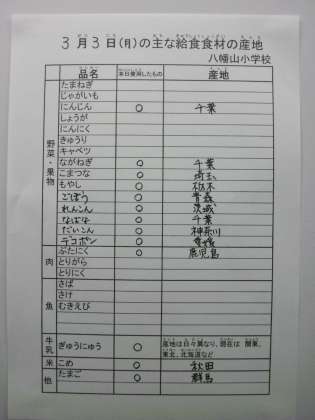 3月3日(月)の主な給食食材の産地
八幡山小学校
品名 本日使用したもの 産地
野菜・果物
たまねぎ
じゃがいも
にんじん ○ 千葉
しょうが
にんにく
きゅうり
キャベツ
ながねぎ ○ 千葉
こまつな ○ 埼玉
もやし ○ 栃木
ごぼう ○ 青森
れんこん ○ 茨城
なばな ○ 千葉
だいこん ○ 神奈川
デコポン ○ 愛媛
肉
ぶたにく ○ 鹿児島
とりがら
とりにく
魚
さば
さけ
むきえび
牛乳
ぎゅうにゅう ○ 産地は日々異なり、現在は 関東、
東北、北海道など
米 こめ ○ 秋田
他 たまご ○ 群馬